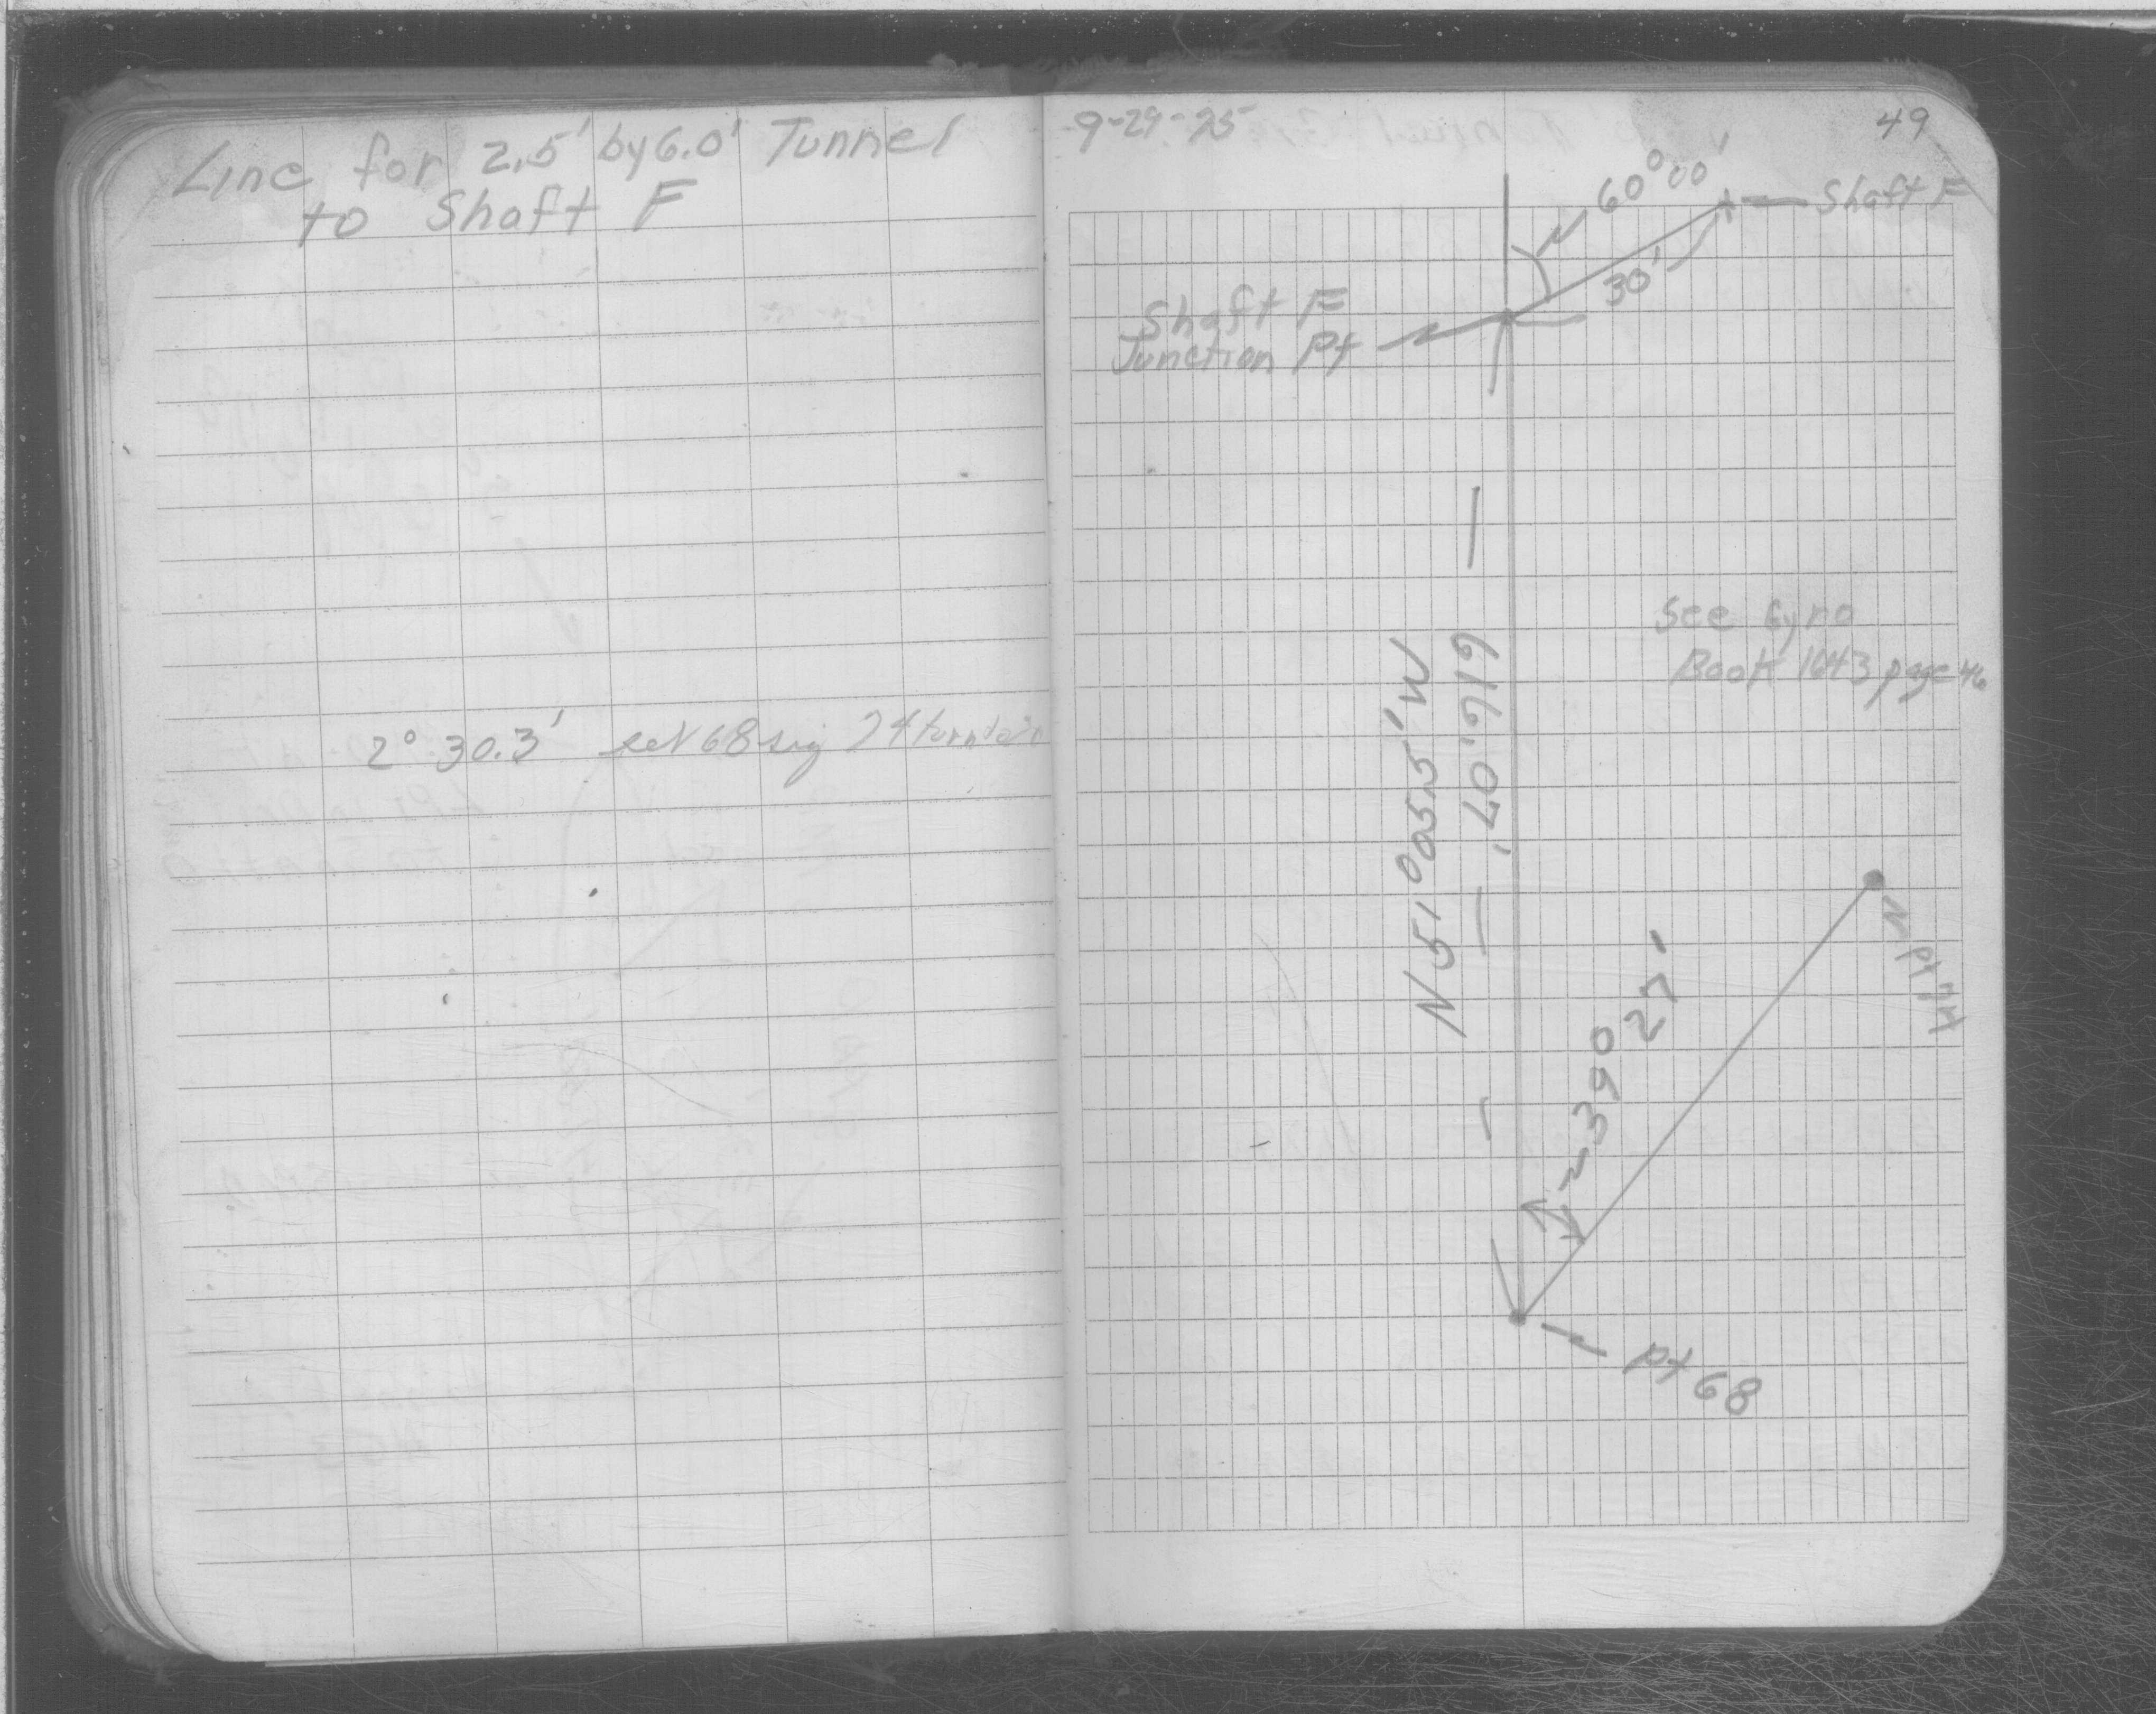 Line for 2.5' by 6.0' Tunnel
to Shaft F
2° 30.3'
9-29-25
49
60°00'
Shaft F
30'
Shaft F
Junction Pt
See Gyro
Book 1643 page 46
N51°05.5'W
619.07'
39° 27'
Pt 68